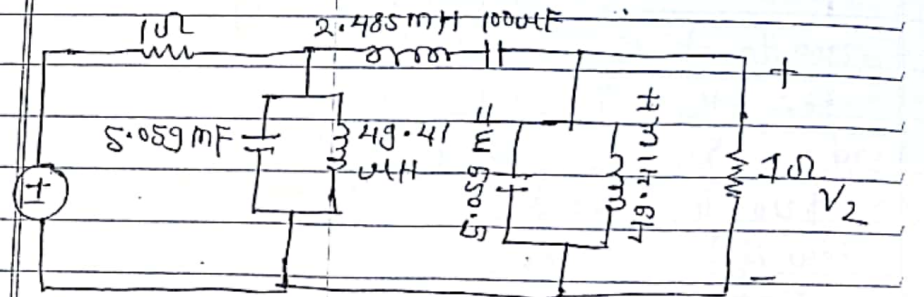 1Ω
2.485mH 100uF
+
5.059mF
49.41
uH
5.059 m
49.41uH
1Ω
V2
±
-